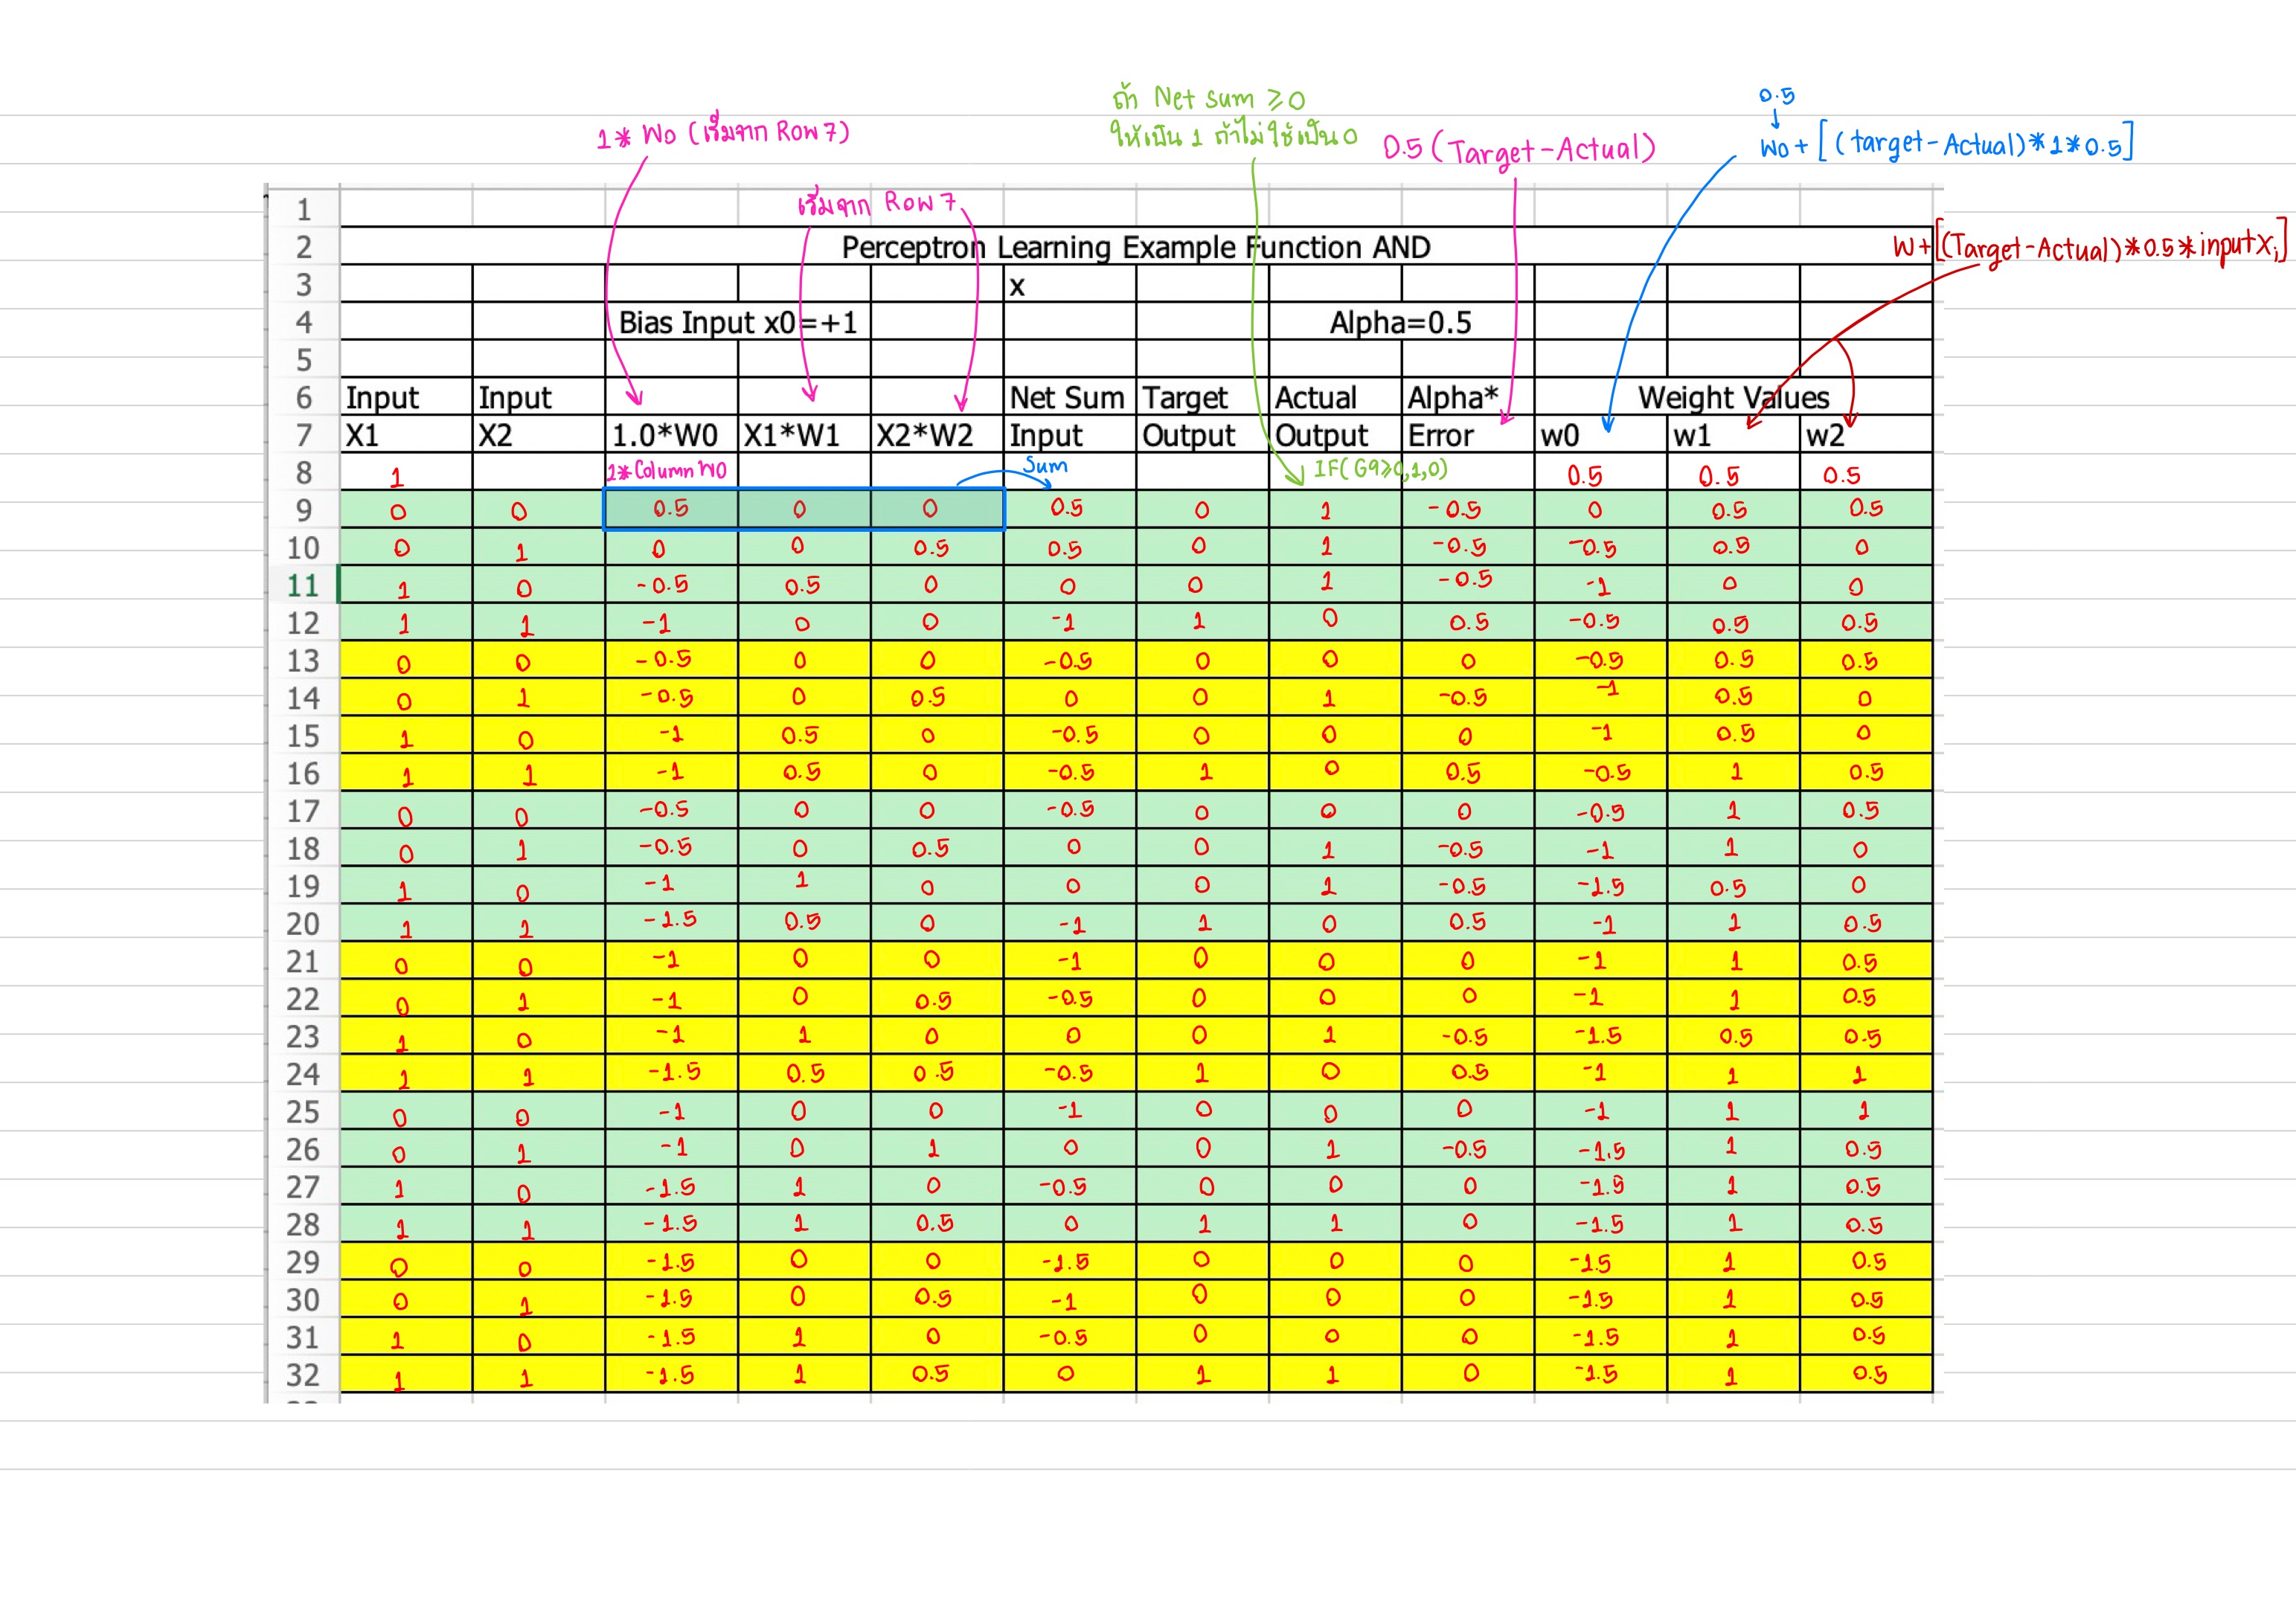 ถ้า Net sum ≥0
0.5
1* W0 (เริ่มจาก Row 7)
ให้เป็น 1 ถ้าไม่ใช่เป็น 0
0.5 (Target-Actual)
W0+[(target-Actual)*1*0.5]
เริ่มจาก Row 7
W+[(Target-Actual)*0.5*inputXi]
1
2 Perceptron Learning Example Function AND
3 x
4 Bias Input x0=+1 Alpha=0.5
5
6 Input Input Net Sum Target Actual Alpha* Weight Values
7 X1 X2 1.0*W0 X1*W1 X2*W2 Input Output Output Error w0 w1 w2
8 1 1*Column W0 Sum IF(G9≥0,1,0) 0.5 0.5 0.5
9 0 0 0.5 0 0 0.5 0 1 -0.5 0 0.5 0.5
10 0 1 0 0 0.5 0.5 0 1 -0.5 -0.5 0.5 0
11 1 0 -0.5 0.5 0 0 0 1 -0.5 -1 0 0
12 1 1 -1 0 0 -1 1 0 0.5 -0.5 0.5 0.5
13 0 0 -0.5 0 0 -0.5 0 0 0 -0.5 0.5 0.5
14 0 1 -0.5 0 0.5 0 0 1 -0.5 -1 0.5 0
15 1 0 -1 0.5 0 -0.5 0 0 0 -1 0.5 0
16 1 1 -1 0.5 0 -0.5 1 0 0.5 -0.5 1 0.5
17 0 0 -0.5 0 0 -0.5 0 0 0 -0.5 1 0.5
18 0 1 -0.5 0 0.5 0 0 1 -0.5 -1 1 0
19 1 0 -1 1 0 0 0 1 -0.5 -1.5 0.5 0
20 1 1 -1.5 0.5 0 -1 1 0 0.5 -1 1 0.5
21 0 0 -1 0 0 -1 0 0 0 -1 1 0.5
22 0 1 -1 0 0.5 -0.5 0 0 0 -1 1 0.5
23 1 0 -1 1 0 0 0 1 -0.5 -1.5 0.5 0.5
24 1 1 -1.5 0.5 0.5 -0.5 1 0 0.5 -1 1 1
25 0 0 -1 0 0 -1 0 0 0 -1 1 1
26 0 1 -1 0 1 0 0 1 -0.5 -1.5 1 0.5
27 1 0 -1.5 1 0 -0.5 0 0 0 -1.5 1 0.5
28 1 1 -1.5 1 0.5 0 1 1 0 -1.5 1 0.5
29 0 0 -1.5 0 0 -1.5 0 0 0 -1.5 1 0.5
30 0 1 -1.5 0 0.5 -1 0 0 0 -1.5 1 0.5
31 1 0 -1.5 1 0 -0.5 0 0 0 -1.5 1 0.5
32 1 1 -1.5 1 0.5 0 1 1 0 -1.5 1 0.5